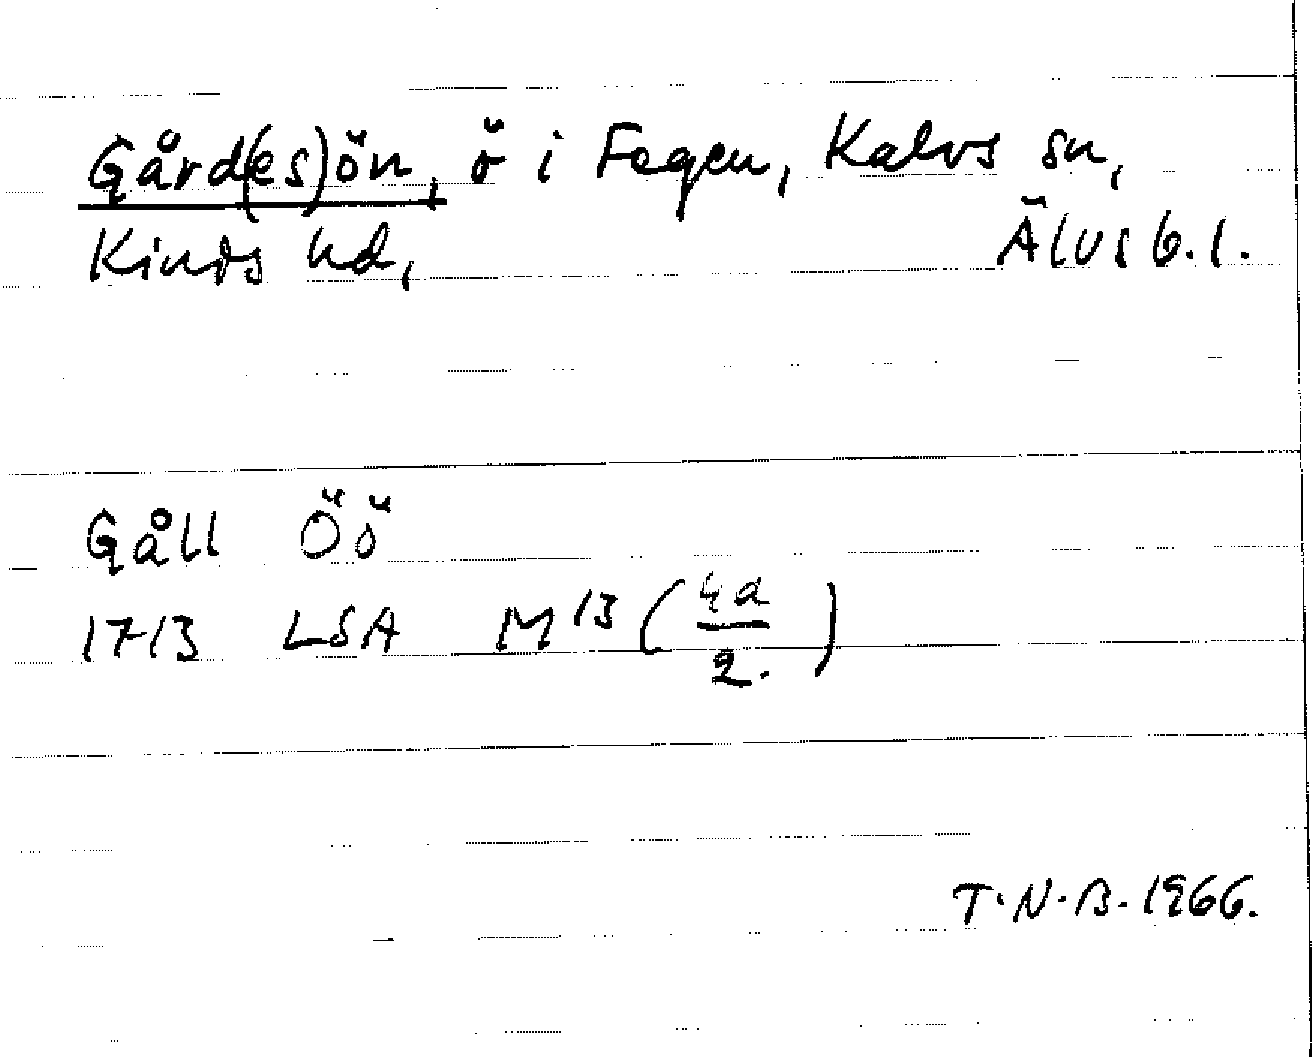 Gård(es)ön, ö i Fegen, Kalvs sn,
Kinds hd, Älvsb.l.
Gåll Öö
1713 LSA M13 (4a/2.)
T.N.B. 1966.